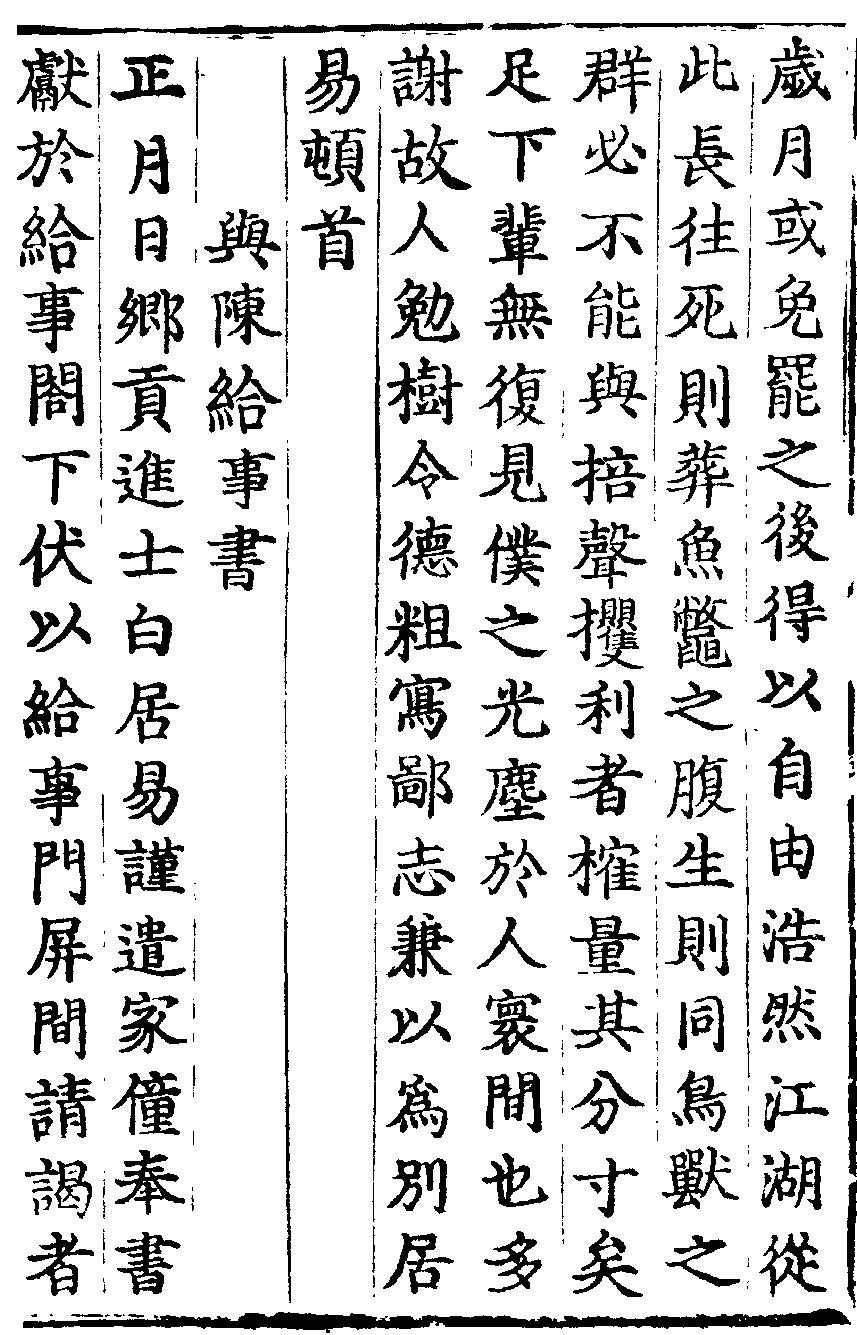 歲月或免罷之後得以自由浩然江湖從
此長往死則葬魚鼈之腹生則同鳥獸之
群必不能與掊聲攫利者榷量其分寸矣
足下輩無復見僕之光塵於人寰間也多
謝故人勉樹令德粗寫鄙志兼以爲別居
易頓首
與陳給事書
正月日鄉貢進士白居易謹遣家僮奉書
獻於給事閤下伏以給事門屏間請謁者